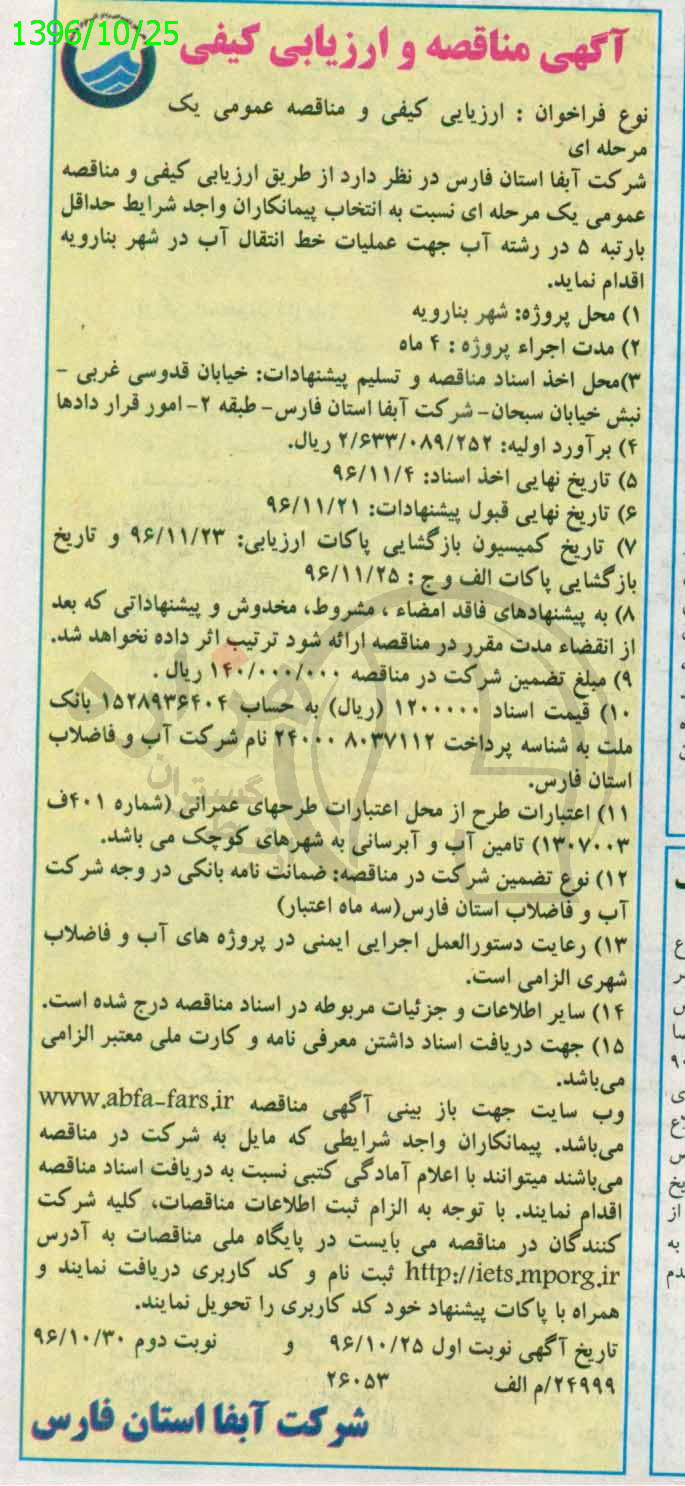 1396/10/25
آگهی مناقصه و ارزیابی کیفی
نوع فراخوان : ارزیابی کیفی و مناقصه عمومی یک
مرحله ای
شرکت آبفا استان فارس در نظر دارد از طریق ارزیابی کیفی و مناقصه
عمومی یک مرحله ای نسبت به انتخاب پیمانکاران واجد شرایط حداقل
بارتبه ۵ در رشته آب جهت عملیات خط انتقال آب در شهر بنارویه
اقدام نماید.
۱) محل پروژه: شهر بنارویه
۲) مدت اجراء پروژه : ۴ ماه
۳)محل اخذ اسناد مناقصه و تسلیم پیشنهادات: خیابان قدوسی غربی -
نبش خیابان سبحان- شرکت آبفا استان فارس- طبقه ۲- امور قرار دادها
۴) برآورد اولیه: ۲/۶۳۳/۰۸۹/۲۵۲ ریال.
۵) تاریخ نهایی اخذ اسناد: ۹۶/۱۱/۴
۶) تاریخ نهایی قبول پیشنهادات: ۹۶/۱۱/۲۱
۷) تاریخ کمیسیون بازگشایی پاکات ارزیابی: ۹۶/۱۱/۲۳ و تاریخ
بازگشایی پاکات الف و ج : ۹۶/۱۱/۲۵
۸) به پیشنهادهای فاقد امضاء ، مشروط، مخدوش و پیشنهاداتی که بعد
از انقضاء مدت مقرر در مناقصه ارائه شود ترتیب اثر داده نخواهد شد.
۹) مبلغ تضمین شرکت در مناقصه ۱۴۰/۰۰۰/۰۰۰ ریال .
۱۰) قیمت اسناد ۱۲۰۰۰۰۰ (ریال) به حساب ۱۵۲۸۹۳۶۴۰۴ بانک
ملت به شناسه پرداخت ۸۰۳۷۱۱۲ ۲۴۰۰۰ نام شرکت آب و فاضلاب
استان فارس.
۱۱) اعتبارات طرح از محل اعتبارات طرحهای عمرانی (شماره ۴۰۱ف
۱۳۰۷۰۰۳) تامین آب و آبرسانی به شهرهای کوچک می باشد.
۱۲) نوع تضمین شرکت در مناقصه: ضمانت نامه بانکی در وجه شرکت
آب و فاضلاب استان فارس(سه ماه اعتبار)
۱۳) رعایت دستورالعمل اجرایی ایمنی در پروژه های آب و فاضلاب
شهری الزامی است.
۱۴) سایر اطلاعات و جزئیات مربوطه در اسناد مناقصه درج شده است.
۱۵) جهت دریافت اسناد داشتن معرفی نامه و کارت ملی معتبر الزامی
می‌باشد.
وب سایت جهت باز بینی آگهی مناقصه www.abfa-fars.ir
می‌باشد. پیمانکاران واجد شرایطی که مایل به شرکت در مناقصه
می‌باشند میتوانند با اعلام آمادگی کتبی نسبت به دریافت اسناد مناقصه
اقدام نمایند. با توجه به الزام ثبت اطلاعات مناقصات، کلیه شرکت
کنندگان در مناقصه می بایست در پایگاه ملی مناقصات به آدرس
http://iets.mporg.ir ثبت نام و کد کاربری دریافت نمایند و
همراه با پاکات پیشنهاد خود کد کاربری را تحویل نمایند.
تاریخ آگهی نوبت اول ۹۶/۱۰/۲۵ و نوبت دوم ۹۶/۱۰/۳۰
۲۴۹۹۹/م الف ۲۶۰۵۳
شرکت آبفا استان فارس